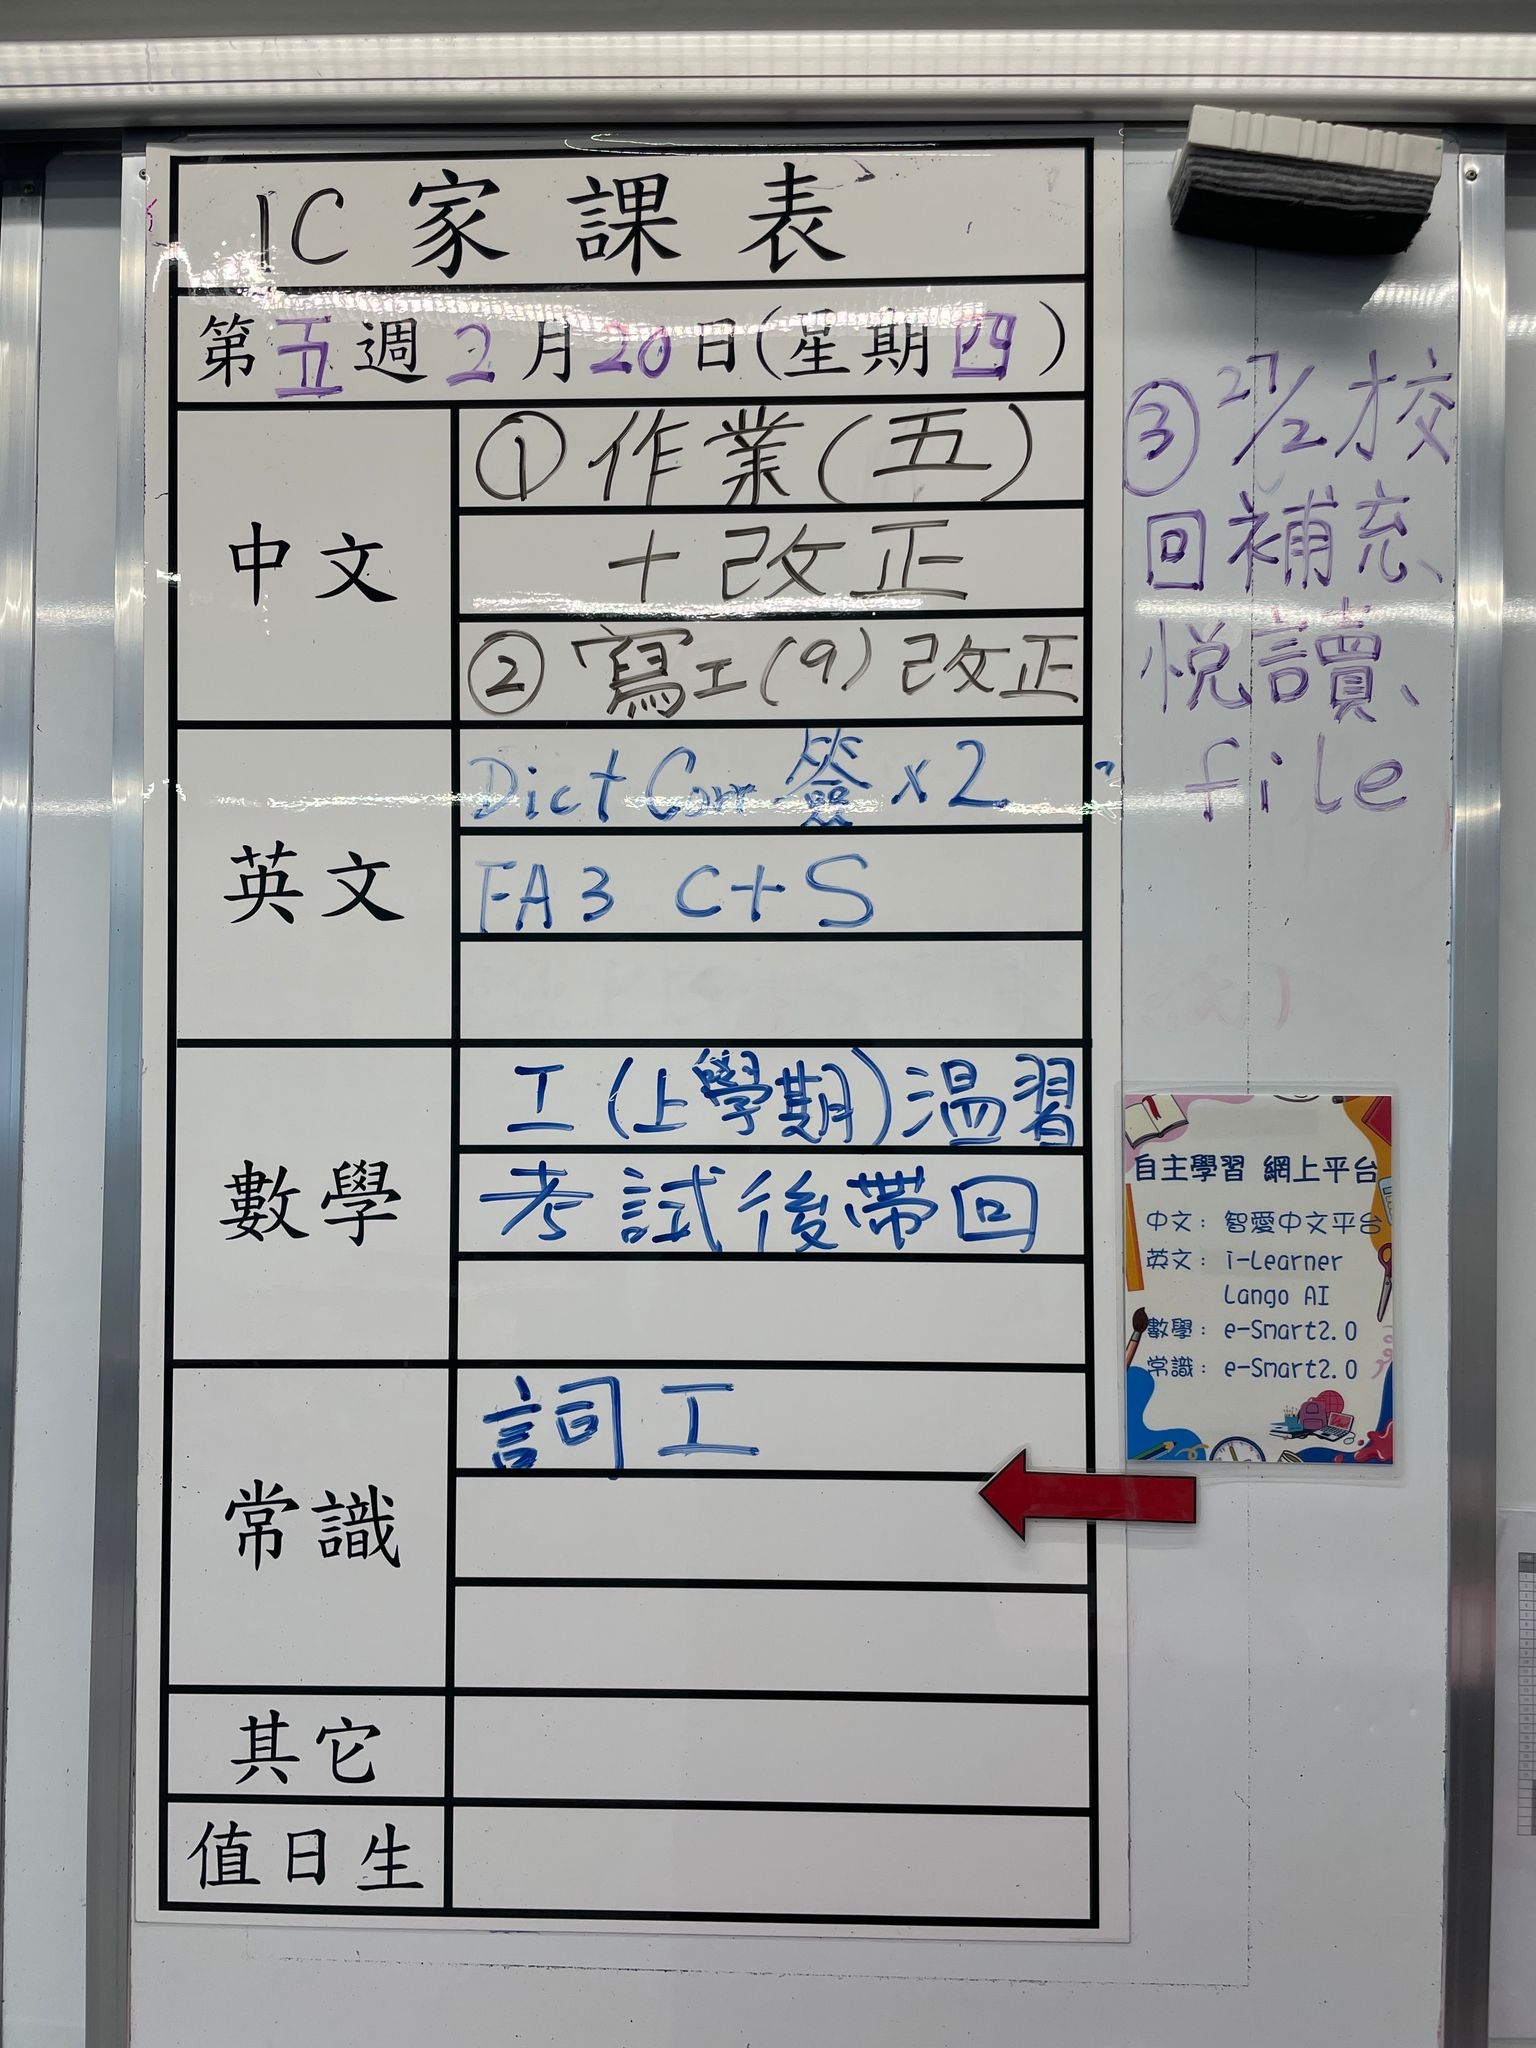 1C 家課表
第五週 2月20日(星期四)
中文
①作業(五)
+改正
②寫工(9)改正
③27/2 才交
回補充、
悅讀、
file
英文
Dict Corr 簽 x2
FA3 C+S
數學
工(上學期)温習
考試後帶回
常識
詞工
其它
值日生
自主學習 網上平台
中文: 智愛中文平台
英文: i-Learner
Lango AI
數學: e-Smart2.0
常識: e-Smart2.0